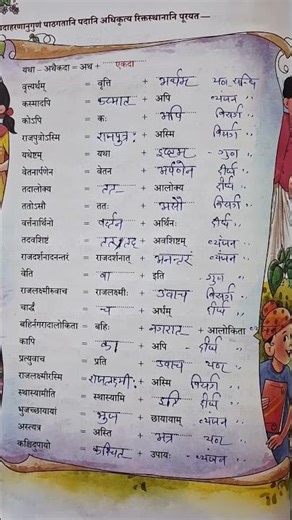 उदाहरणानुगुणं पाठगतानि पदानि अधिकृत्य रिक्तस्थानानि पूरयत—
यथा – अथैकदा = अथ + एकदा
वृत्त्यर्थम् = वृत्ति + अर्थम् यण् सन्धि
कस्मादपि = कस्मात् + अपि व्यंजन "
कोऽपि = कः + अपि विसर्ग "
राजपुत्रोऽस्मि = राजपुत्रः + अस्मि विसर्ग "
यथेष्टम् = यथा + इष्टम् - गुण "
वेतनार्पणेन = वेतन + अर्पणेन दीर्घ "
तदालोक्य = तत् + आलोक्य दीर्घ "
ततोऽसौ = ततः + असौ विसर्ग "
वर्त्तनार्थिनो = वर्त्तन + अर्थिनः दीर्घ "
तदवशिष्टं = तत् + अवशिष्टम् व्यंजन "
राजदर्शनादनन्तरं = राजदर्शनात् + अनन्तरं व्यंजन "
वेति = वा + इति गुण "
राजलक्ष्मीरुवाच = राजलक्ष्मीः + उवाच विसर्ग "
चार्द्धं = च + अर्धम् दीर्घ "
बहिर्नगरादालोकिता = बहिः + नगरात् + आलोकिता
कापि = का + अपि दीर्घ "
प्रत्युवाच = प्रति + उवाच यण् "
राजलक्ष्मीरस्मि = राजलक्ष्मीः + अस्मि विसर्ग "
स्थास्यामीति = स्थास्यामि + इति दीर्घ "
भुजच्छायायां = भुज + छायायाम् व्यंजन "
अस्त्यत्र = अस्ति + अत्र यण् "
कश्चिदुपायो = कश्चित् + उपायः - व्यंजन "